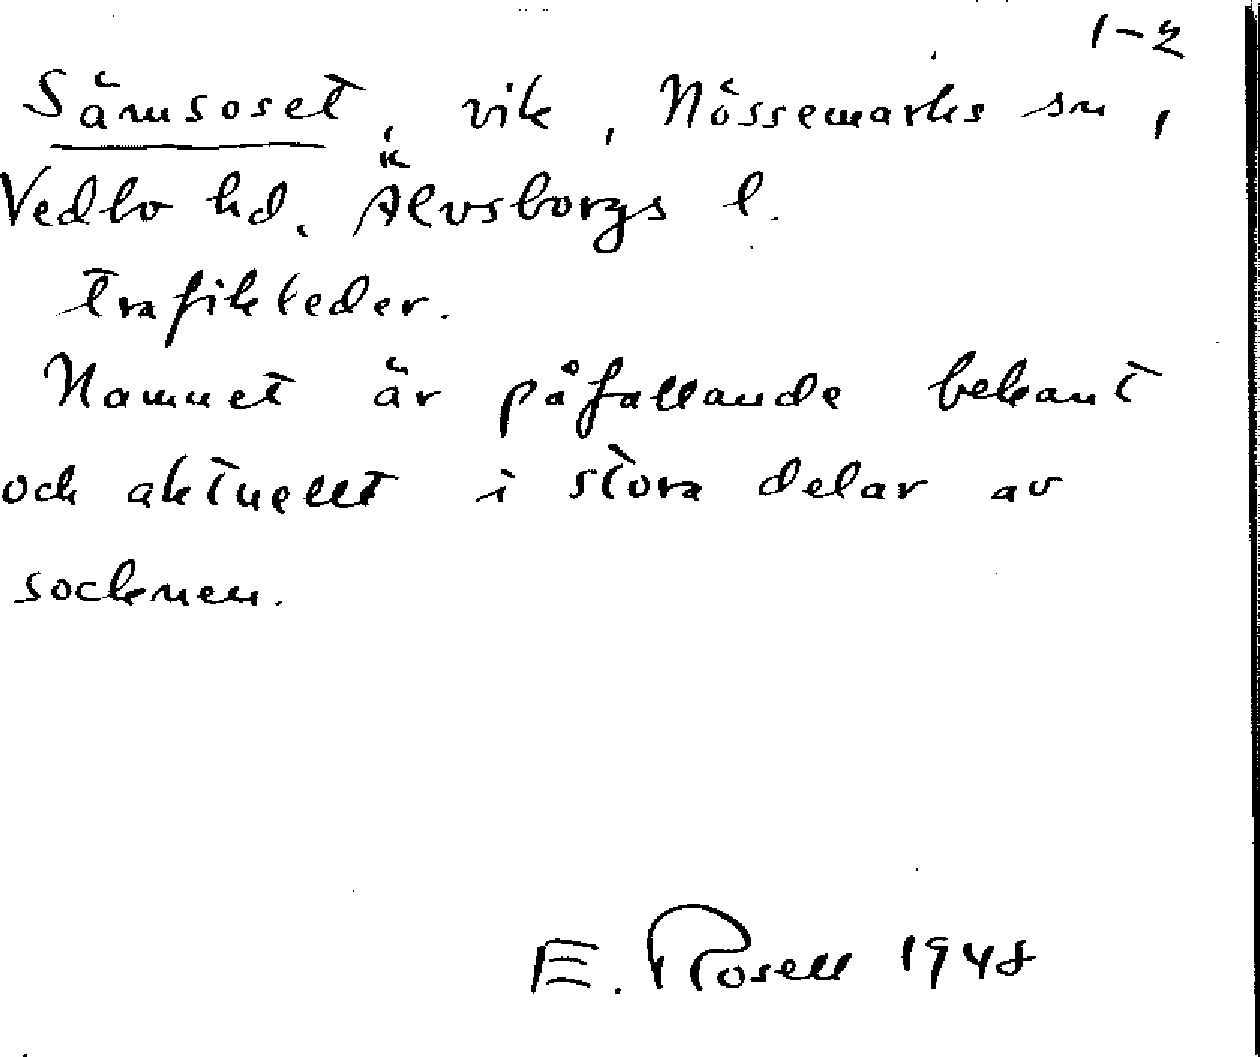 1-2
Särnsoset, vik, Nössemarks sn,
Vedbo hd. Älvsborgs l.
Trafikleder.
Namnet är påfallande bekant
och aktuellt i stora delar av
socknen.
E. Rosell 1948